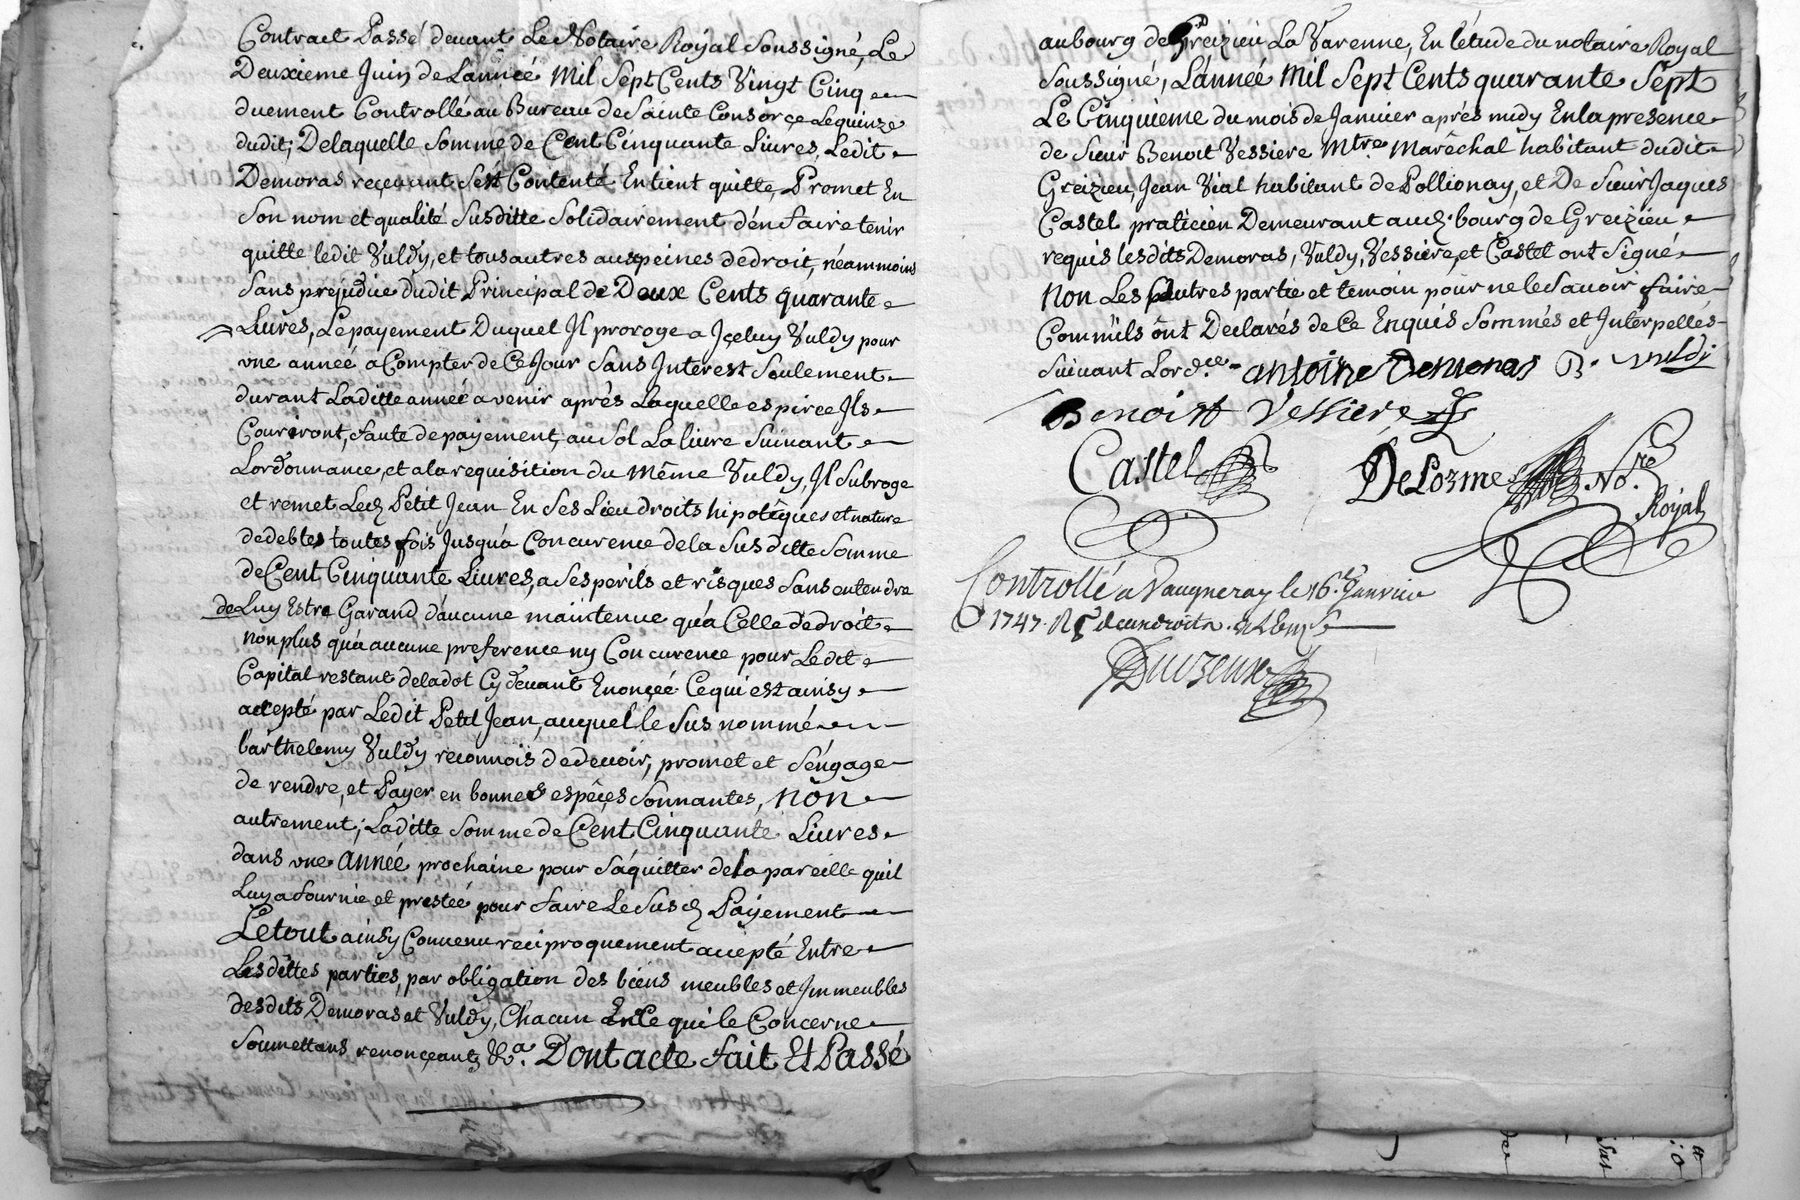 Contract Passé devant Le Notaire Royal Soussigné, Le
Deuxieme Juin de L'année Mil Sept Cents Vingt Cinq
duement Controllé au Bureau de Sainte Consorçe Le quinze
dudit; De laquelle Somme de Cent Cinquante Livres, Ledit
Demoras reçevant s'est Contenté En tient quitte, Promet En
Son nom et qualité Susditte Solidairement d'en faire tenir
quitte ledit Vuldy, et tous autres aus peines de droit, néammoins
Sans prejudice dudit Principal de Deux Cents quarante
Livres, Le payement Duquel Jl proroge a Jçeluy Vuldy pour
vne année a Compter de Ce Jour Sans Jnterest Seulement
durant Laditte année a venir après Laquelle espireé Jls
Couriront, faute de payement, au Sol La livre Suivant
Lordonnance, et a la requisition du Même Vuldy, Jl Subroge
et remet Led. Petit Jean En Ses Lieu droits hipotêques et nature
de debtes toutes fois Jusqu'a Concurence de la Susditte Somme
de Cent Cinquante Livres, a Ses perils et risques Sans entendre
de Luy Estre Garand, d'aucune maintenue qu'a Celle de droit
non plus qu'a aucune preference ny Concurence pour Ledit
Capital restant de la dot Cy devant Enonçéé Ce qui est ainsy
accepté par Ledit Petit Jean, auquel le Sus nommé
barthelemy Vuldy reconnois de devoir, promet et s'éngage
de rendre, et Payer en bonnes espêçes Sonnantes, non
autrement; Laditte Somme de Cent Cinquante Livres
dans vne année prochaine pour s'aquitter de la pareille quil
Luy a fournie et prestéé pour faire Le Susd. Payement
Le tout ainsy Convenu reciproquement accepté Entre
Les dittes parties, par obligation des biens meubles et Jmmeubles
desdits Demoras et Vuldy, Chacun En Ce qui le Concerne
Soumettans renonçeants &a. Dont acte fait Et Passé
au bourg de Greizieu La Varenne, En l'étude du notaire Royal
Soussigné, L'année Mil Sept Cents quarante Sept
Le Cinquieme du mois de Janvier après midy En la presence
de Sieur Benoit Vessiere Mtre Marêchal habitant dudit
Greizieu, Jean Vial habitant de Pollionay, et De Sieur Jaques
Castel praticien Demeurant aud. bourg de Greizieu
requis lesdits Demoras, Vuldy, Vessiere, et Castel ont Signé
Non Les autres partie et temoin pour ne le Savoir faire
Comm'ils ônt Declarés de Ce Enquis Sommés et Jnterpellés
Suivant Lordce. antoine Demoras B. vuldy
Benoist Vessiere
Castel DeLorme No.re
Royal
Controllé a Vaugneray le 16.e Janvier
1747.